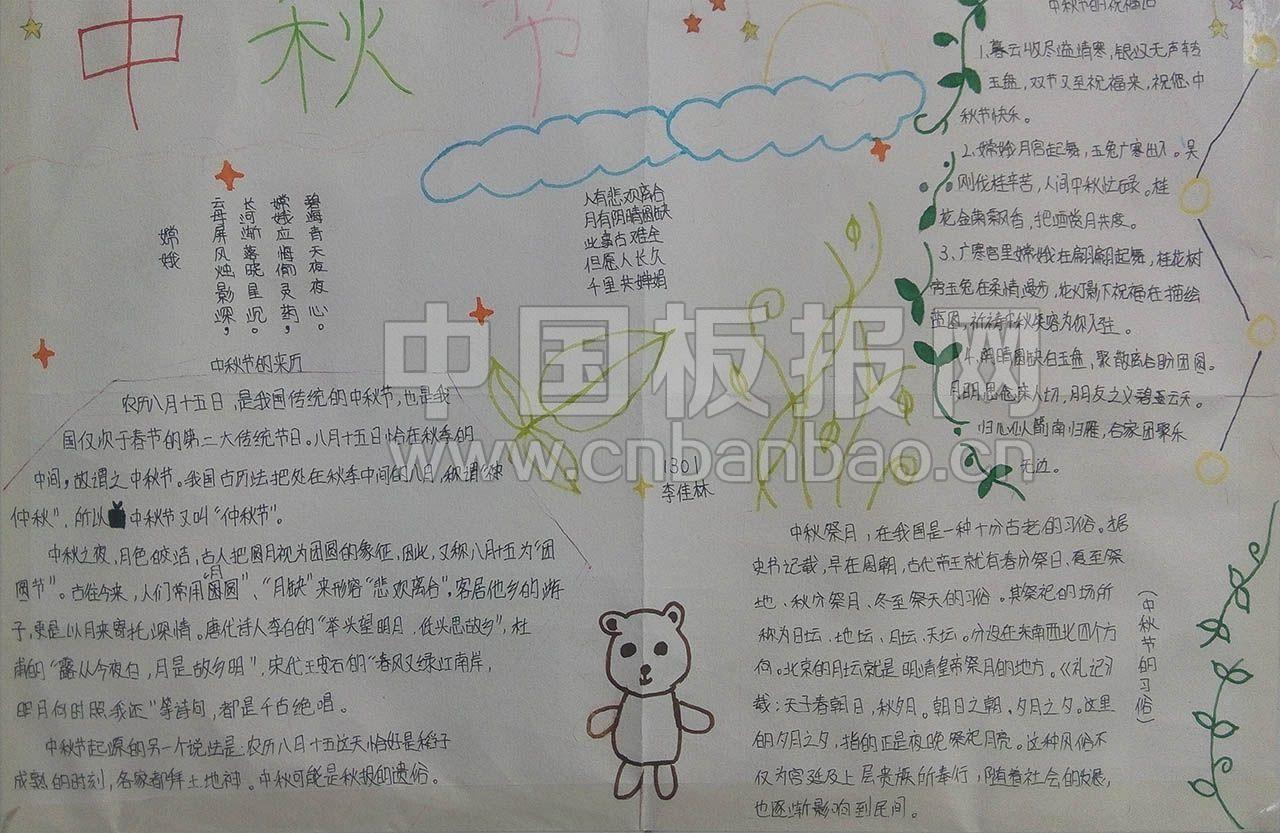 中秋节
嫦娥
云母屏风烛影深，
长河渐落晓星沉。
嫦娥应悔偷灵药，
碧海青天夜夜心。
人有悲欢离合
月有阴晴圆缺
此事古难全
但愿人长久
千里共婵娟
中秋节的来历
农历八月十五日，是我国传统的中秋节，也是我
国仅次于春节的第二大传统节日。八月十五日恰在秋季的
中间，故谓之中秋节。我国古历法把处在秋季中间的八月，称谓“秧
仲秋”，所以中秋节又叫“仲秋节”。
中秋之夜，月色皎洁，古人把圆月视为团圆的象征，因此，又称八月十五为“团
圆节”。古往今来，人们常用“月圆”、“月缺”来形容“悲欢离合”，客居他乡的游
子，更是以月来寄托深情。唐代诗人李白的“举头望明月，低头思故乡”，杜
甫的“露从今夜白，月是故乡明”，宋代王安石的“春风又绿江南岸，
明月何时照我还”等诗句，都是千古绝唱。
中秋节起源的另一个说法是：农历八月十五这天恰好是稻子
成熟的时刻，各家都拜土地神。中秋可能是秋报的遗俗。
1301
李佳林
中秋节的祝福语
1、暮云收尽溢清寒，银汉无声转
玉盘，双节又至祝福来，祝您中
秋节快乐。
2、嫦娥月宫起舞，玉兔广寒出入。吴
刚伐桂辛苦，人间中秋忙碌。桂
花金菊飘香，把酒赏月共度。
3、广寒宫里嫦娥在翩翩起舞，桂花树
旁玉兔在柔情漫步，花灯影下祝福在描绘
蓝图，祈祷中秋美容为你入驻。
4、阴晴圆缺白玉盘，聚散离合盼团圆。
月明思念亲人切，朋友之义碧云天。
归心似箭南归雁，合家团聚乐
无边。
中秋祭月，在我国是一种十分古老的习俗。据
史书记载，早在周朝，古代帝王就有春分祭日、夏至祭
地、秋分祭月、冬至祭天的习俗。其祭祀的场所
称为日坛、地坛、月坛、天坛。分设在东南西北四个方
向。北京的月坛就是明清皇帝祭月的地方。《礼记》
载：天子春朝日，秋夕月。朝日之朝，夕月之夕。这里
的夕月之夕，指的正是夜晚祭祀月亮。这种风俗不
仅为宫廷及上层贵族所奉行，随着社会的发展，
也逐渐影响到民间。
（中秋节的习俗）
中国板报网
www.cnbanbao.cn